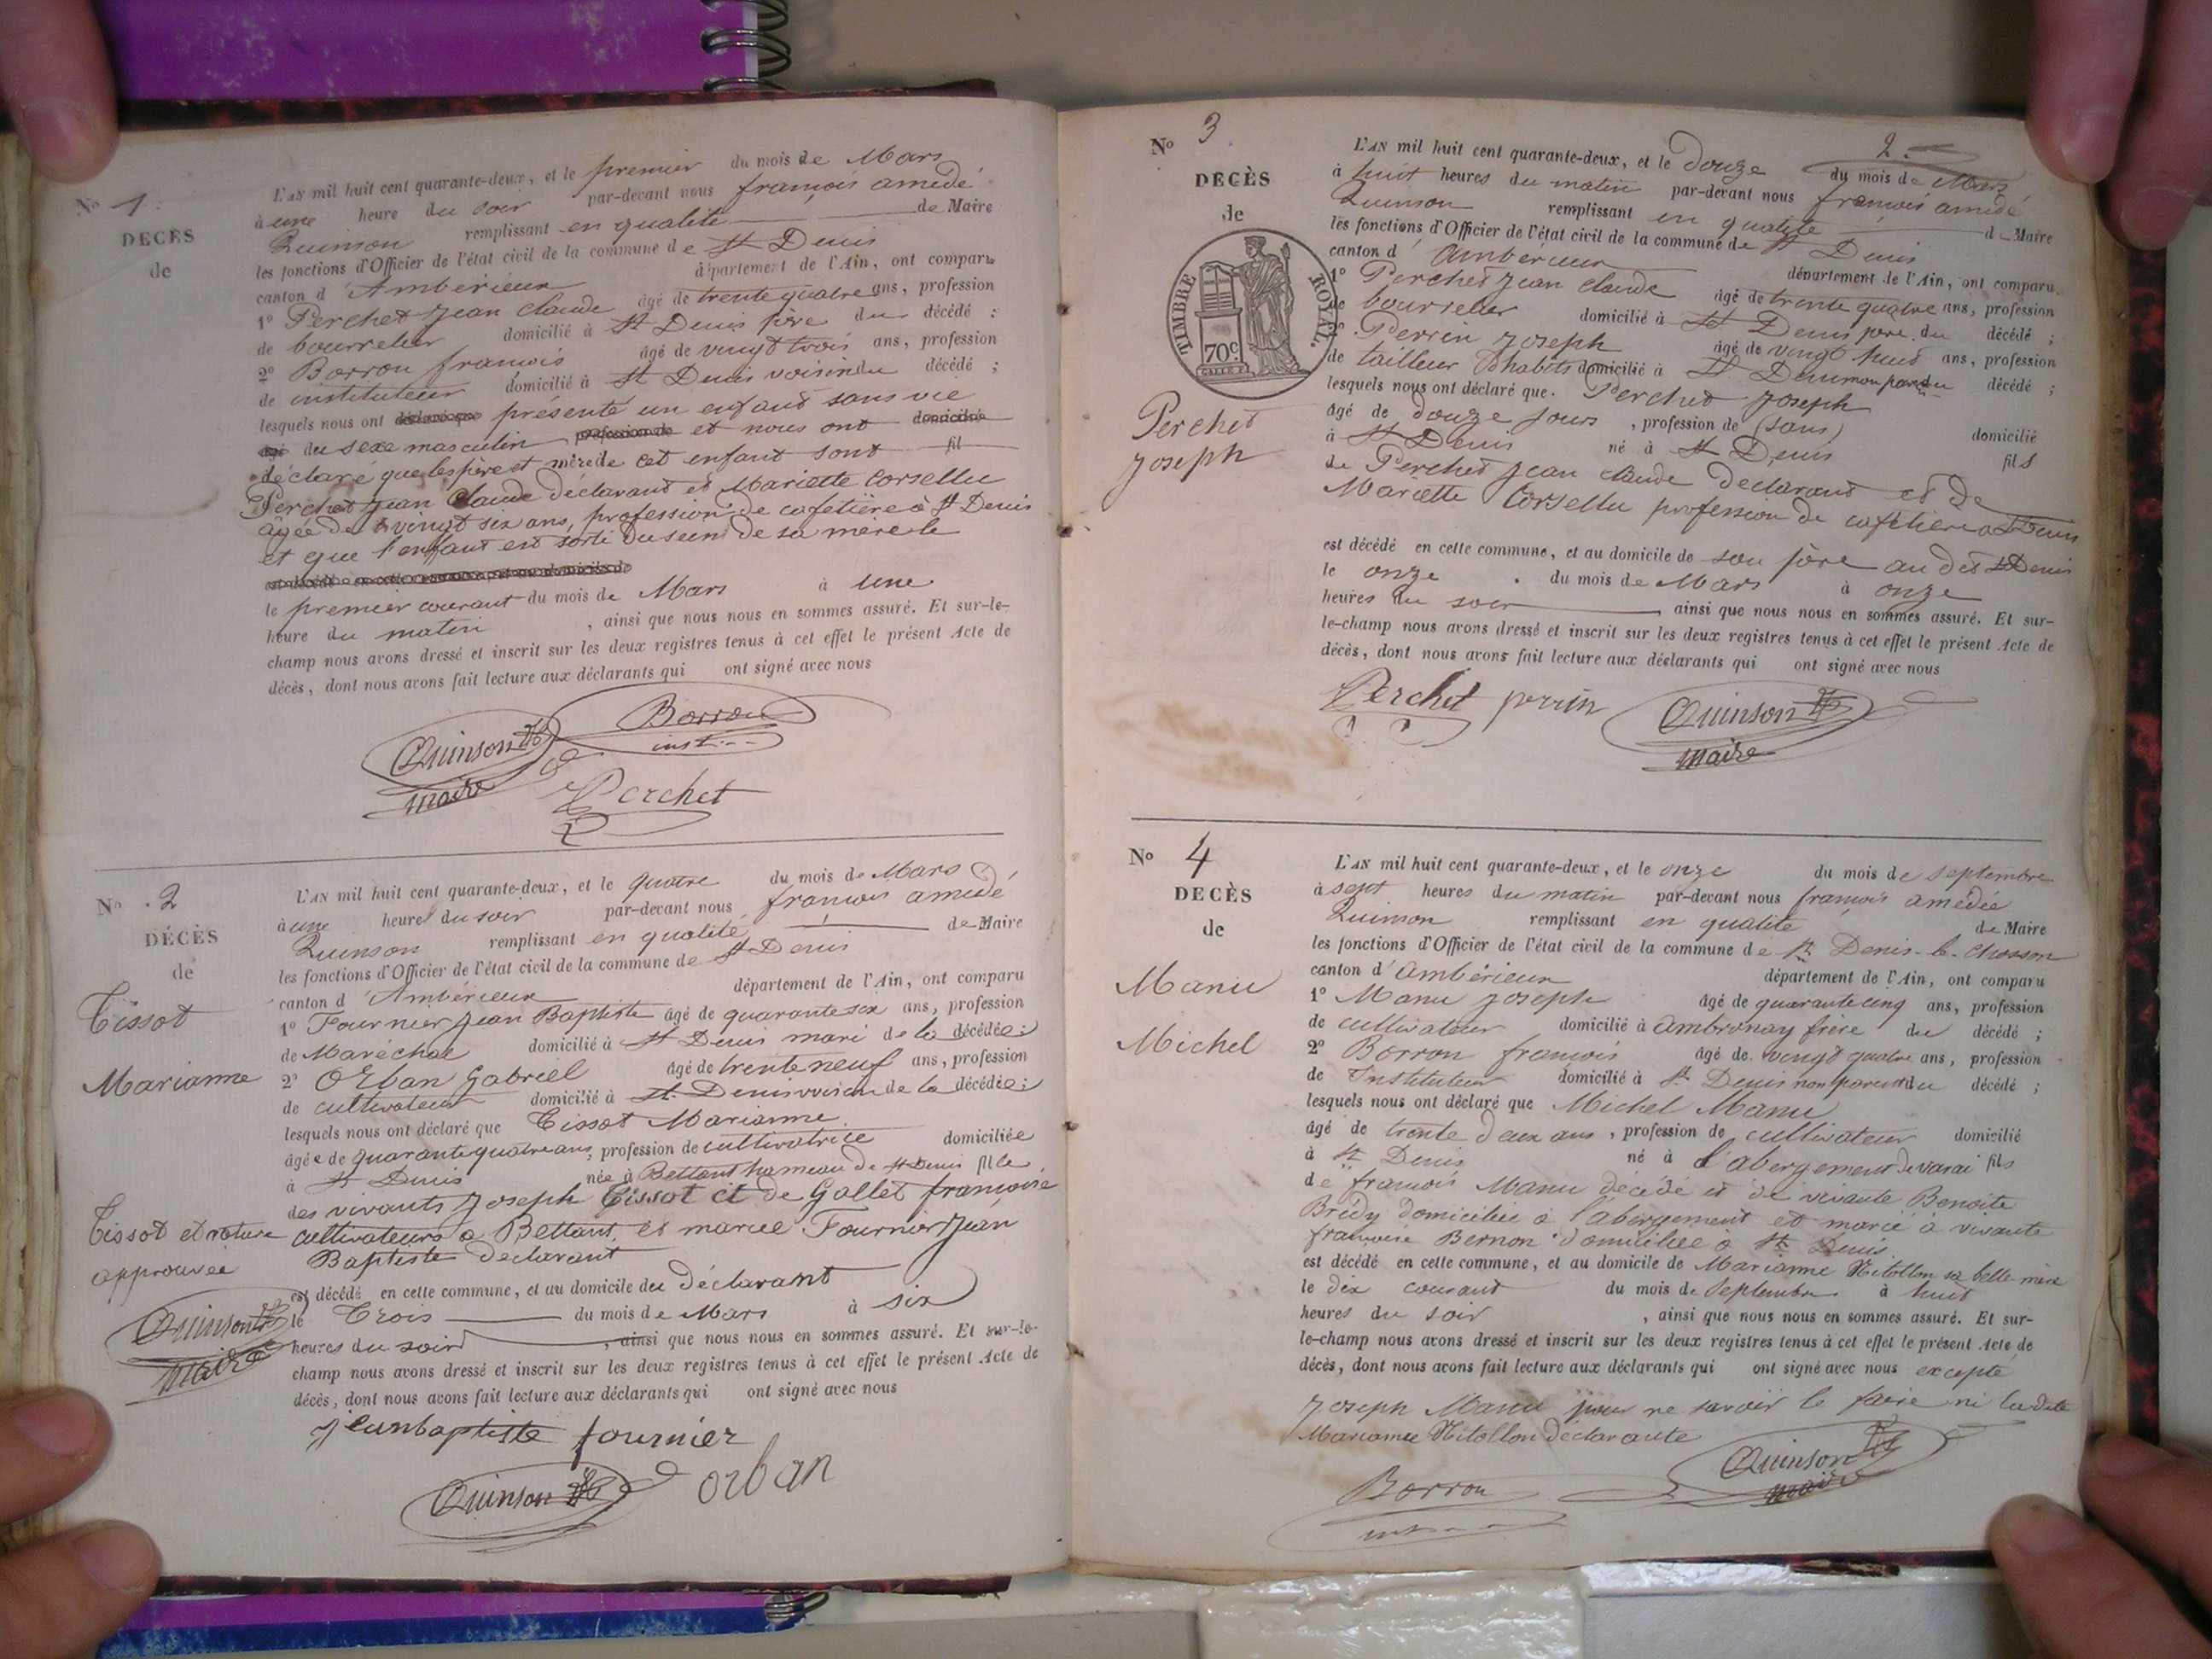 No 1.
DÉCÈS
de
L'AN mil huit cent quarante-deux, et le premier du mois de Mars
à une heure du soir par-devant nous françois amédé
Quinson remplissant en qualité de Maire
les fonctions d'Officier de l'état civil de la commune de St Denis
canton d'Ambérieux département de l'Ain, ont comparu
1º Perchet Jean claude âgé de trente quatre ans, profession
de bourrelier domicilié à St Denis père du décédé ;
2º Borron francois âgé de vingt trois ans, profession
de instituteur domicilié à St Denis voisin du décédé ;
lesquels nous ont déclaré que présenté un enfant sans vie
âgé du sexe masculin, profession de et nous ont domicilié
déclaré que les père et mère de cet enfant sont fil
Perchet Jean Claude déclarant et Mariette Corsellu
âgée de vingt six ans, profession de cafetière à St Denis
et que l'enfant est sorti du sein de sa mère le
est décédé en cette commune, et au domicile de
le premier courant du mois de Mars à une
heure du matin , ainsi que nous nous en sommes assuré. Et sur-le-
champ nous avons dressé et inscrit sur les deux registres tenus à cet effet le présent Acte de
décès, dont nous avons fait lecture aux déclarants qui ont signé avec nous
Borron
inst
Quinson
maire
Perchet
No 2
DÉCÈS
de
Tissot
Marianne
L'AN mil huit cent quarante-deux, et le quatre du mois de Mars
à une heure du soir par-devant nous françois amédé
Quinson remplissant en qualité de Maire
les fonctions d'Officier de l'état civil de la commune de St Denis
canton d'Ambérieux département de l'Ain, ont comparu
1º Fournier Jean Baptiste âgé de quarante six ans, profession
de Maréchal domicilié à St Denis mari de la décédée ;
2º Orban Gabriel âgé de trente neuf ans, profession
de cultivateur domicilié à St Denis voisin de la décédée ;
lesquels nous ont déclaré que Tissot Marianne
âgée de quarante quatre ans, profession de cultivatrice domiciliée
à St Denis née à Bettant hameau de St Denis fille
des vivants Joseph Tissot et de Gallet françoise
cultivateurs à Bettant, et mariée Fournier Jean
Baptiste déclarant
Tissot et rature
approuvée
Quinson
maire
est décédé en cette commune, et au domicile du déclarant
le Trois du mois de Mars à six
heures du soir , ainsi que nous nous en sommes assuré. Et sur-le-
champ nous avons dressé et inscrit sur les deux registres tenus à cet effet le présent Acte de
décès, dont nous avons fait lecture aux déclarants qui ont signé avec nous
jeanbaptiste fournier
Quinson orban
2.
No 3
DÉCÈS
de
TIMBRE ROYAL.
70c
Perchet
Joseph
L'AN mil huit cent quarante-deux, et le douze du mois de Mars
à huit heures du matin par-devant nous françois amédé
Quinson remplissant en qualité de Maire
les fonctions d'Officier de l'état civil de la commune de St Denis
canton d'Ambérieux département de l'Ain, ont comparu
1º Perchet Jean claude âgé de trente quatre ans, profession
de bourrelier domicilié à St Denis père du décédé ;
2º Perrin Joseph âgé de vingt huit ans, profession
de tailleur d'habits domicilié à St Denis non parent du décédé ;
lesquels nous ont déclaré que Perchet Joseph
âgé de douze jours , profession de (sans) domicilié
à St Denis né à St Denis fils
de Perchet Jean claude déclarant et de
Mariette Corsellu profession de cafetière à St Denis
est décédé en cette commune, et au domicile de son père au dit St Denis
le onze du mois de Mars à onze
heures du soir , ainsi que nous nous en sommes assuré. Et sur-
le-champ nous avons dressé et inscrit sur les deux registres tenus à cet effet le présent Acte de
décès, dont nous avons fait lecture aux déclarants qui ont signé avec nous
Perchet perrin Quinson
maire
No 4
DÉCÈS
de
Manu
Michel
L'AN mil huit cent quarante-deux, et le onze du mois de septembre
à sept heures du matin par-devant nous françois amédée
Quinson remplissant en qualité de Maire
les fonctions d'Officier de l'état civil de la commune de St Denis-le-Chosson
canton d'Ambérieux département de l'Ain, ont comparu
1º Manu Joseph âgé de quarante cinq ans, profession
de cultivateur domicilié à Ambronay frère du décédé ;
2º Borron francois âgé de vingt quatre ans, profession
de Instituteur domicilié à St Denis non parent du décédé ;
lesquels nous ont déclaré que Michel Manu
âgé de trente deux ans , profession de cultivateur domicilié
à St Denis né à l'abergement de varai fils
de francois Manu décédé et de vivante Benoite
Brédy domiciliée à l'abergement et marié à vivante
françoise Bernon domiciliée à St Denis
est décédé en cette commune, et au domicile de Marianne Nitollon sa belle mère
le dix courant du mois de Septembre à huit
heures du soir , ainsi que nous nous en sommes assuré. Et sur-
le-champ nous avons dressé et inscrit sur les deux registres tenus à cet effet le présent Acte de
décès, dont nous avons fait lecture aux déclarants qui ont signé avec nous excepté
Joseph Manu pour ne savoir le faire ni la dite
Marianne Nitollon déclarante
Borron Quinson
maire